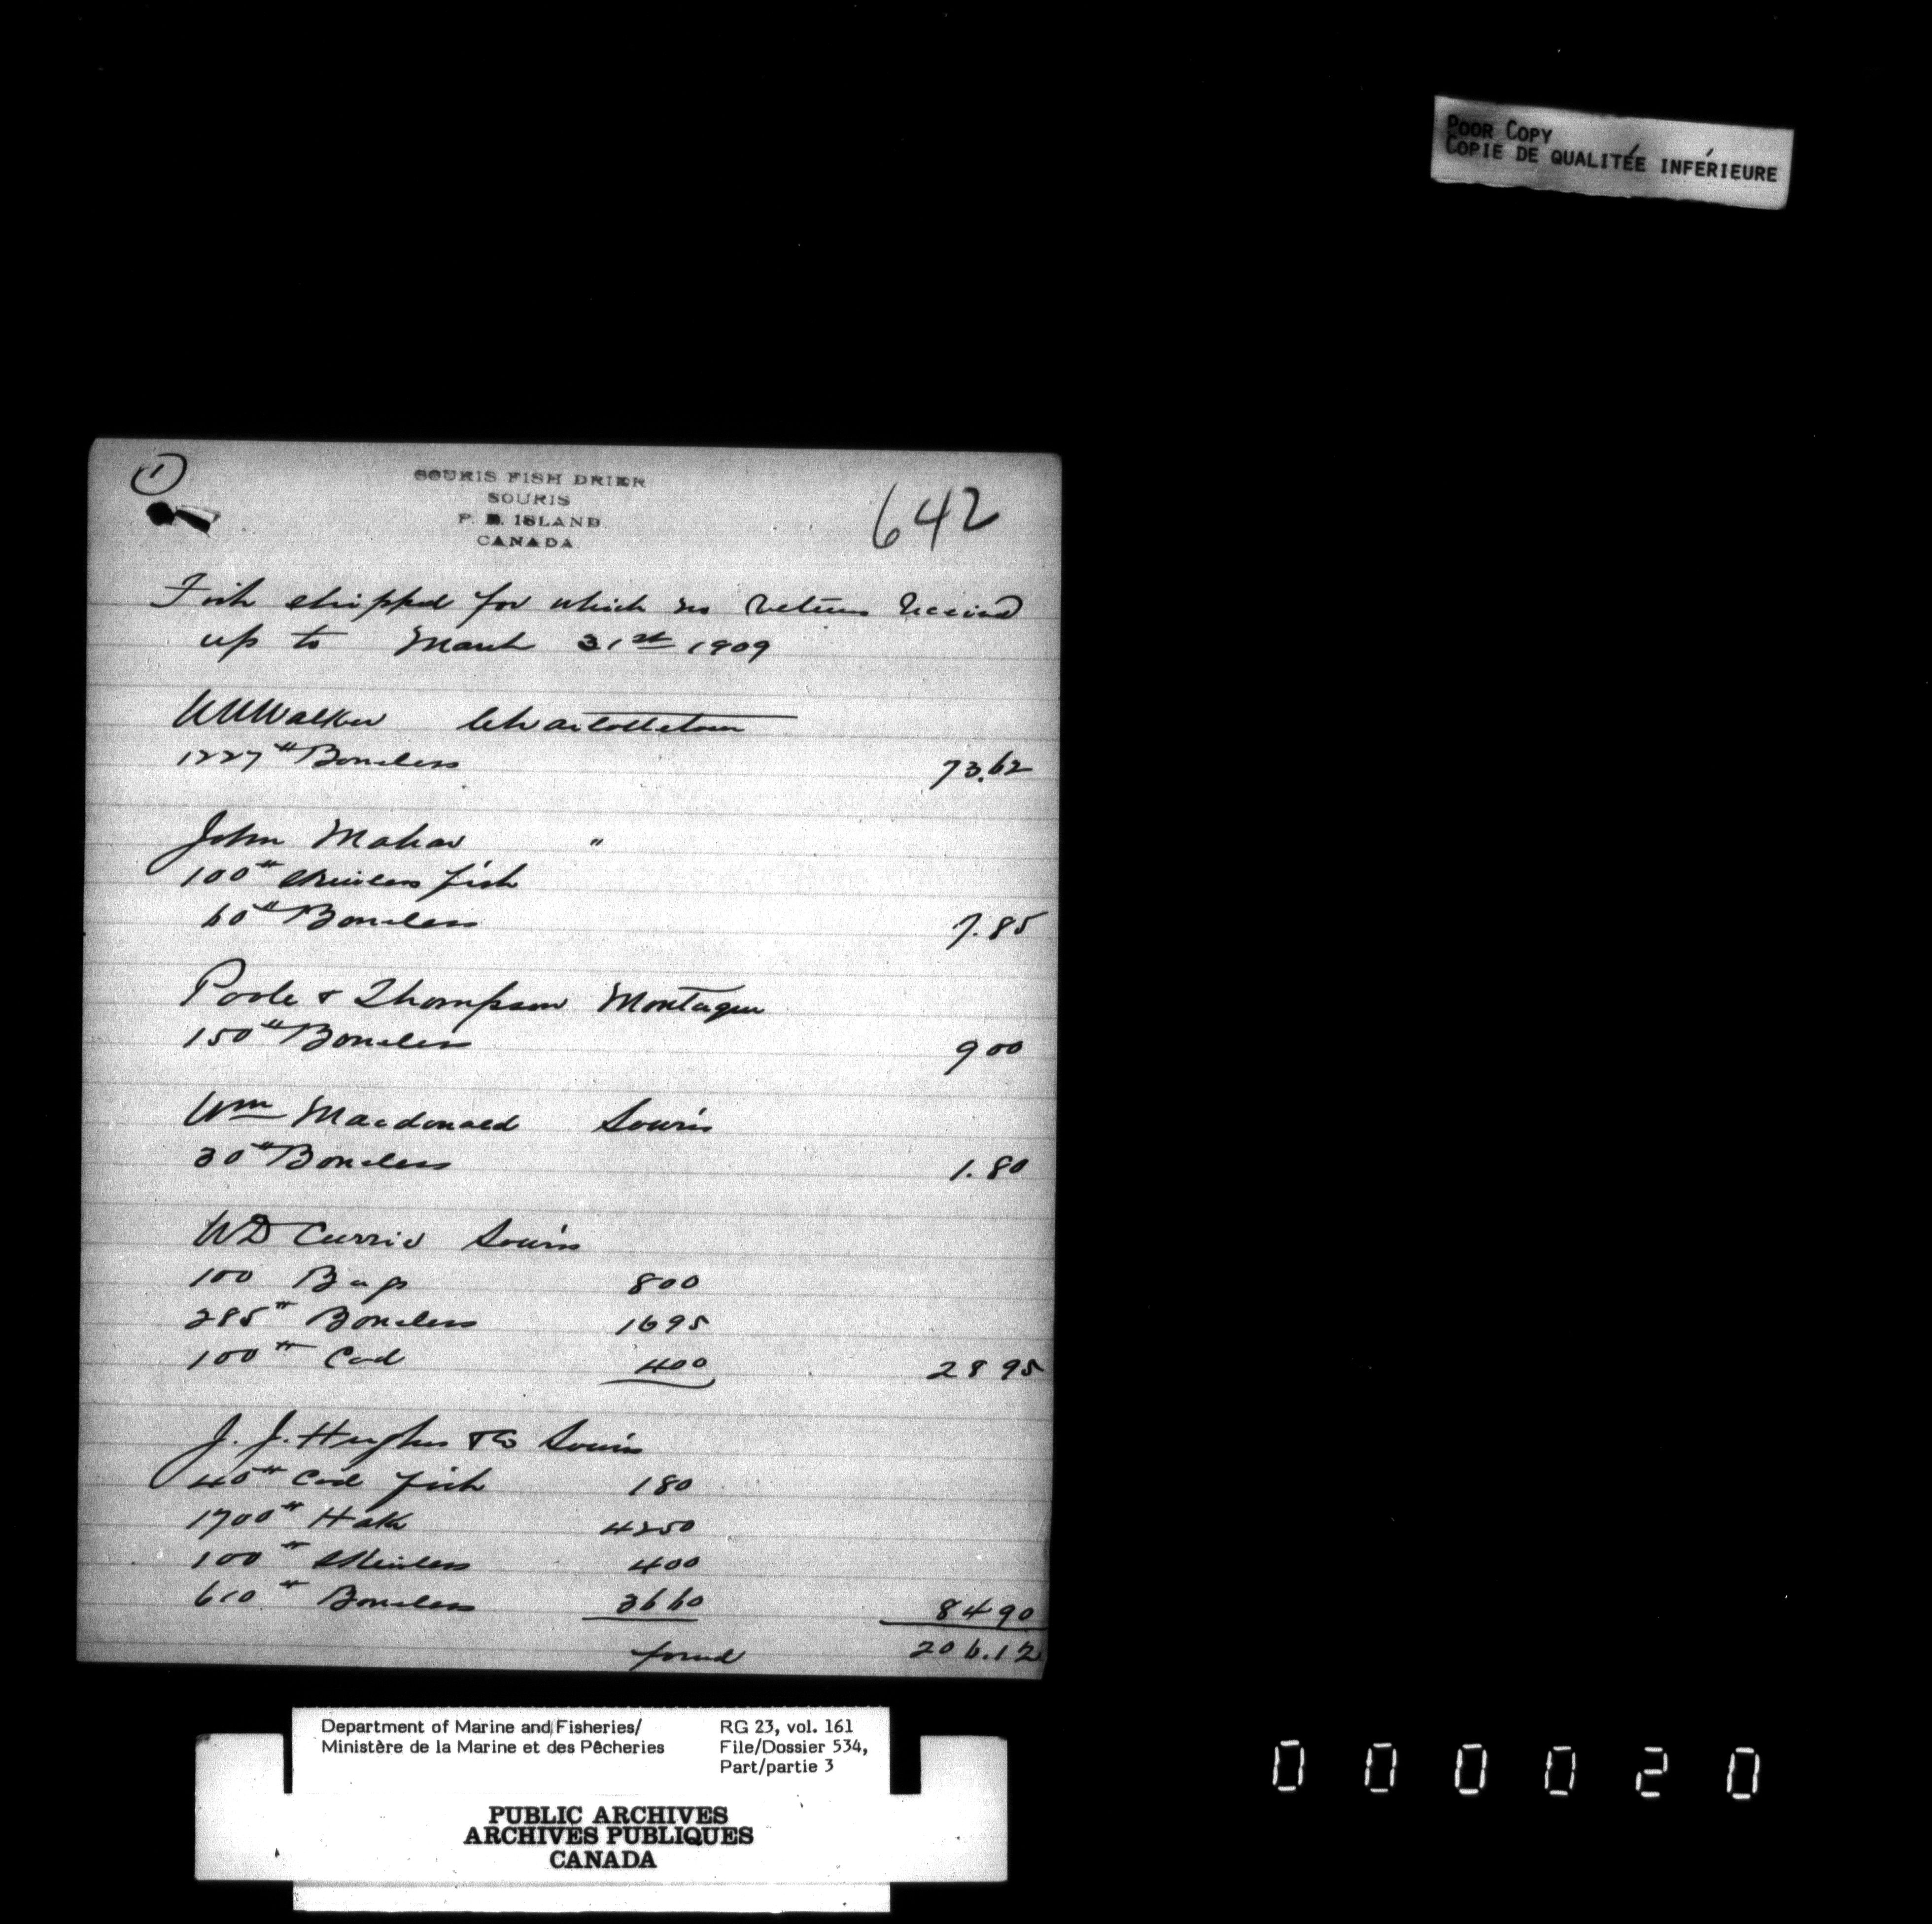 POOR COPY
COPIE DE QUALITÉE INFÉRIEURE
1
SOURIS FISH DRIER
SOURIS
P. E. ISLAND
CANADA
642
Fish shipped for which no returns Received
up to March 31st 1909
Walker Charlottetown
1227# Boneless 73.62
John Mahar "
100# Skinless fish
60# Boneless 7.85
Poole & Thompson Montague
150# Boneless 9 00
Wm Macdonald Souris
30# Boneless 1.80
WD Currie Souris
100 Bags 800
285# Boneless 1695
100# Cod 400 28 95
J. J. Hughes & Co Souris
45# Cod fish 180
1700# Hake 4250
100# Skinless 400
610# Boneless 3660 84 90
forwd 206.12
Department of Marine and Fisheries/ RG 23, vol. 161
Ministère de la Marine et des Pêcheries File/Dossier 534,
Part/partie 3
PUBLIC ARCHIVES
ARCHIVES PUBLIQUES
CANADA
000020